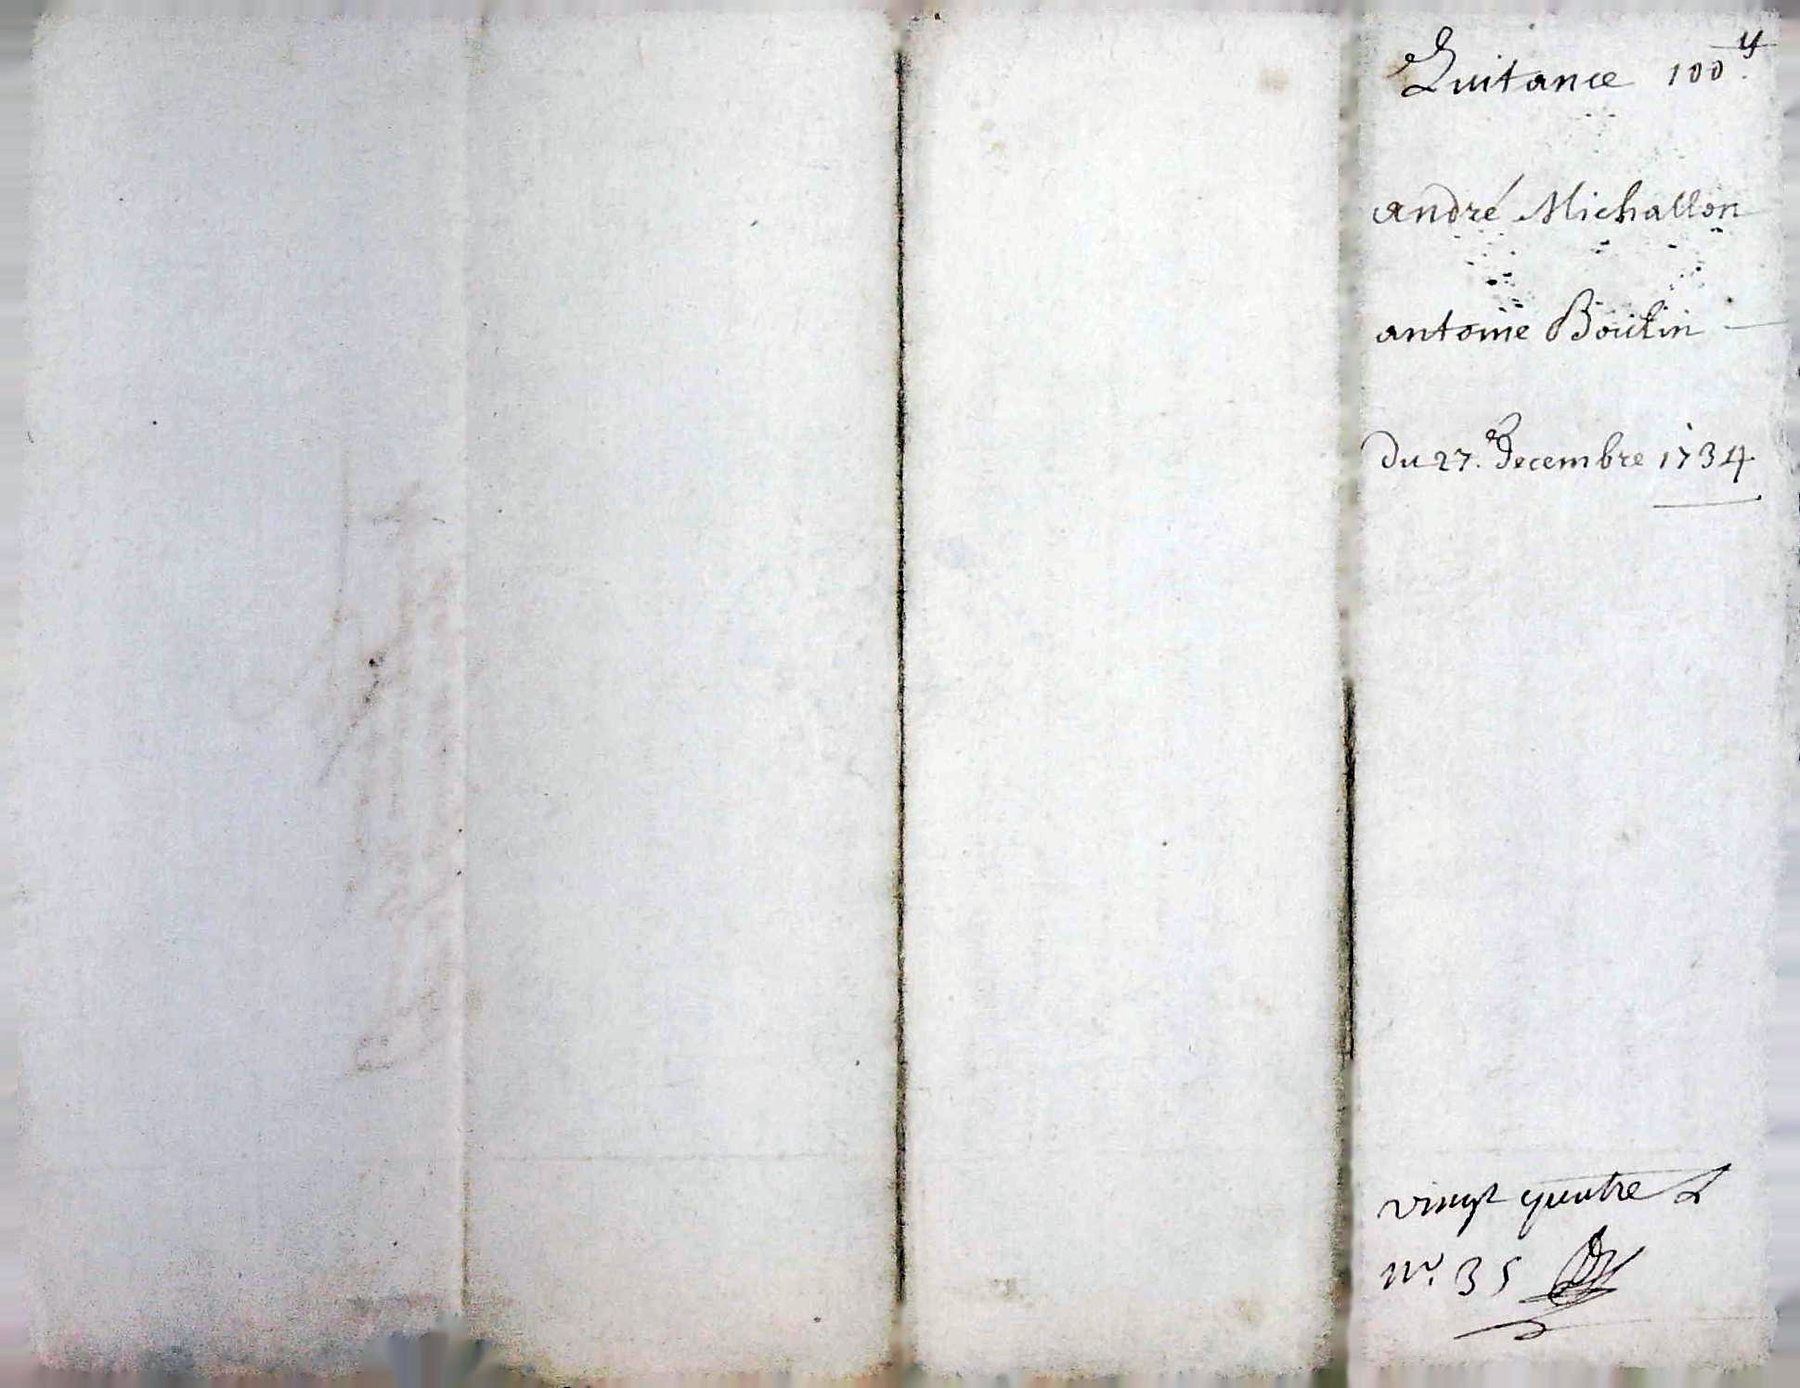 Quitance 100 ₶.
andré Michallon
antoine Boutin
du 27. decembre 1734
vingt quatre
n.° 35